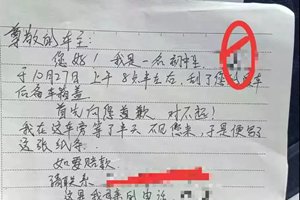 尊敬的车主:
您好!我是一名初中生,
于10月27日上午8点半左右,刮了您的车
后备车箱盖
首先向您道歉 对不起!
我在这车旁等了半天 不见您来,于是便写了
这张纸条
如要赔款
请联系
这是我母亲的电话